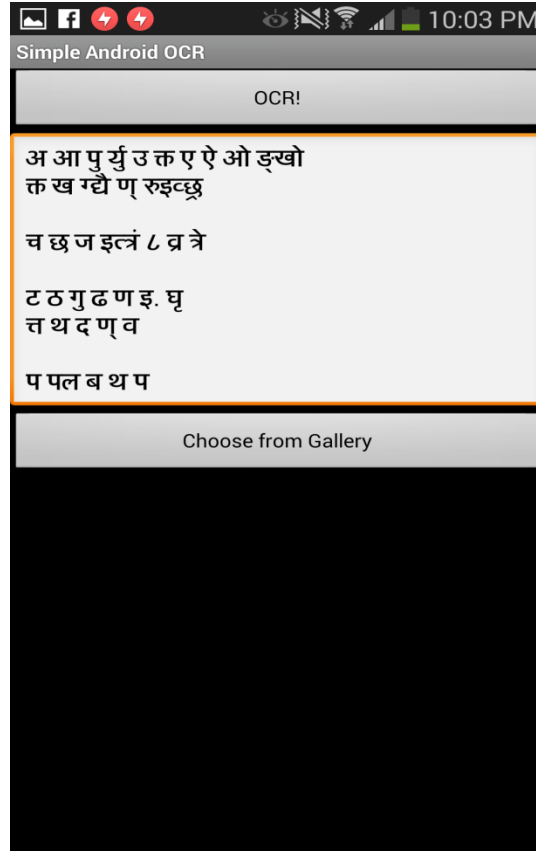 10:03 PM
Simple Android OCR
OCR!
अ आ पु र्यु उ क्त ए ऐ ओ ङ्खो
क्त ख ग्द्यै ण् रुइव्छ्र
च छ ज इत्त्रं ८ व्र त्रे
ट ठ गु ढ ण इ. घृ
त्त थ द ण् व
प पल ब थ प
Choose from Gallery